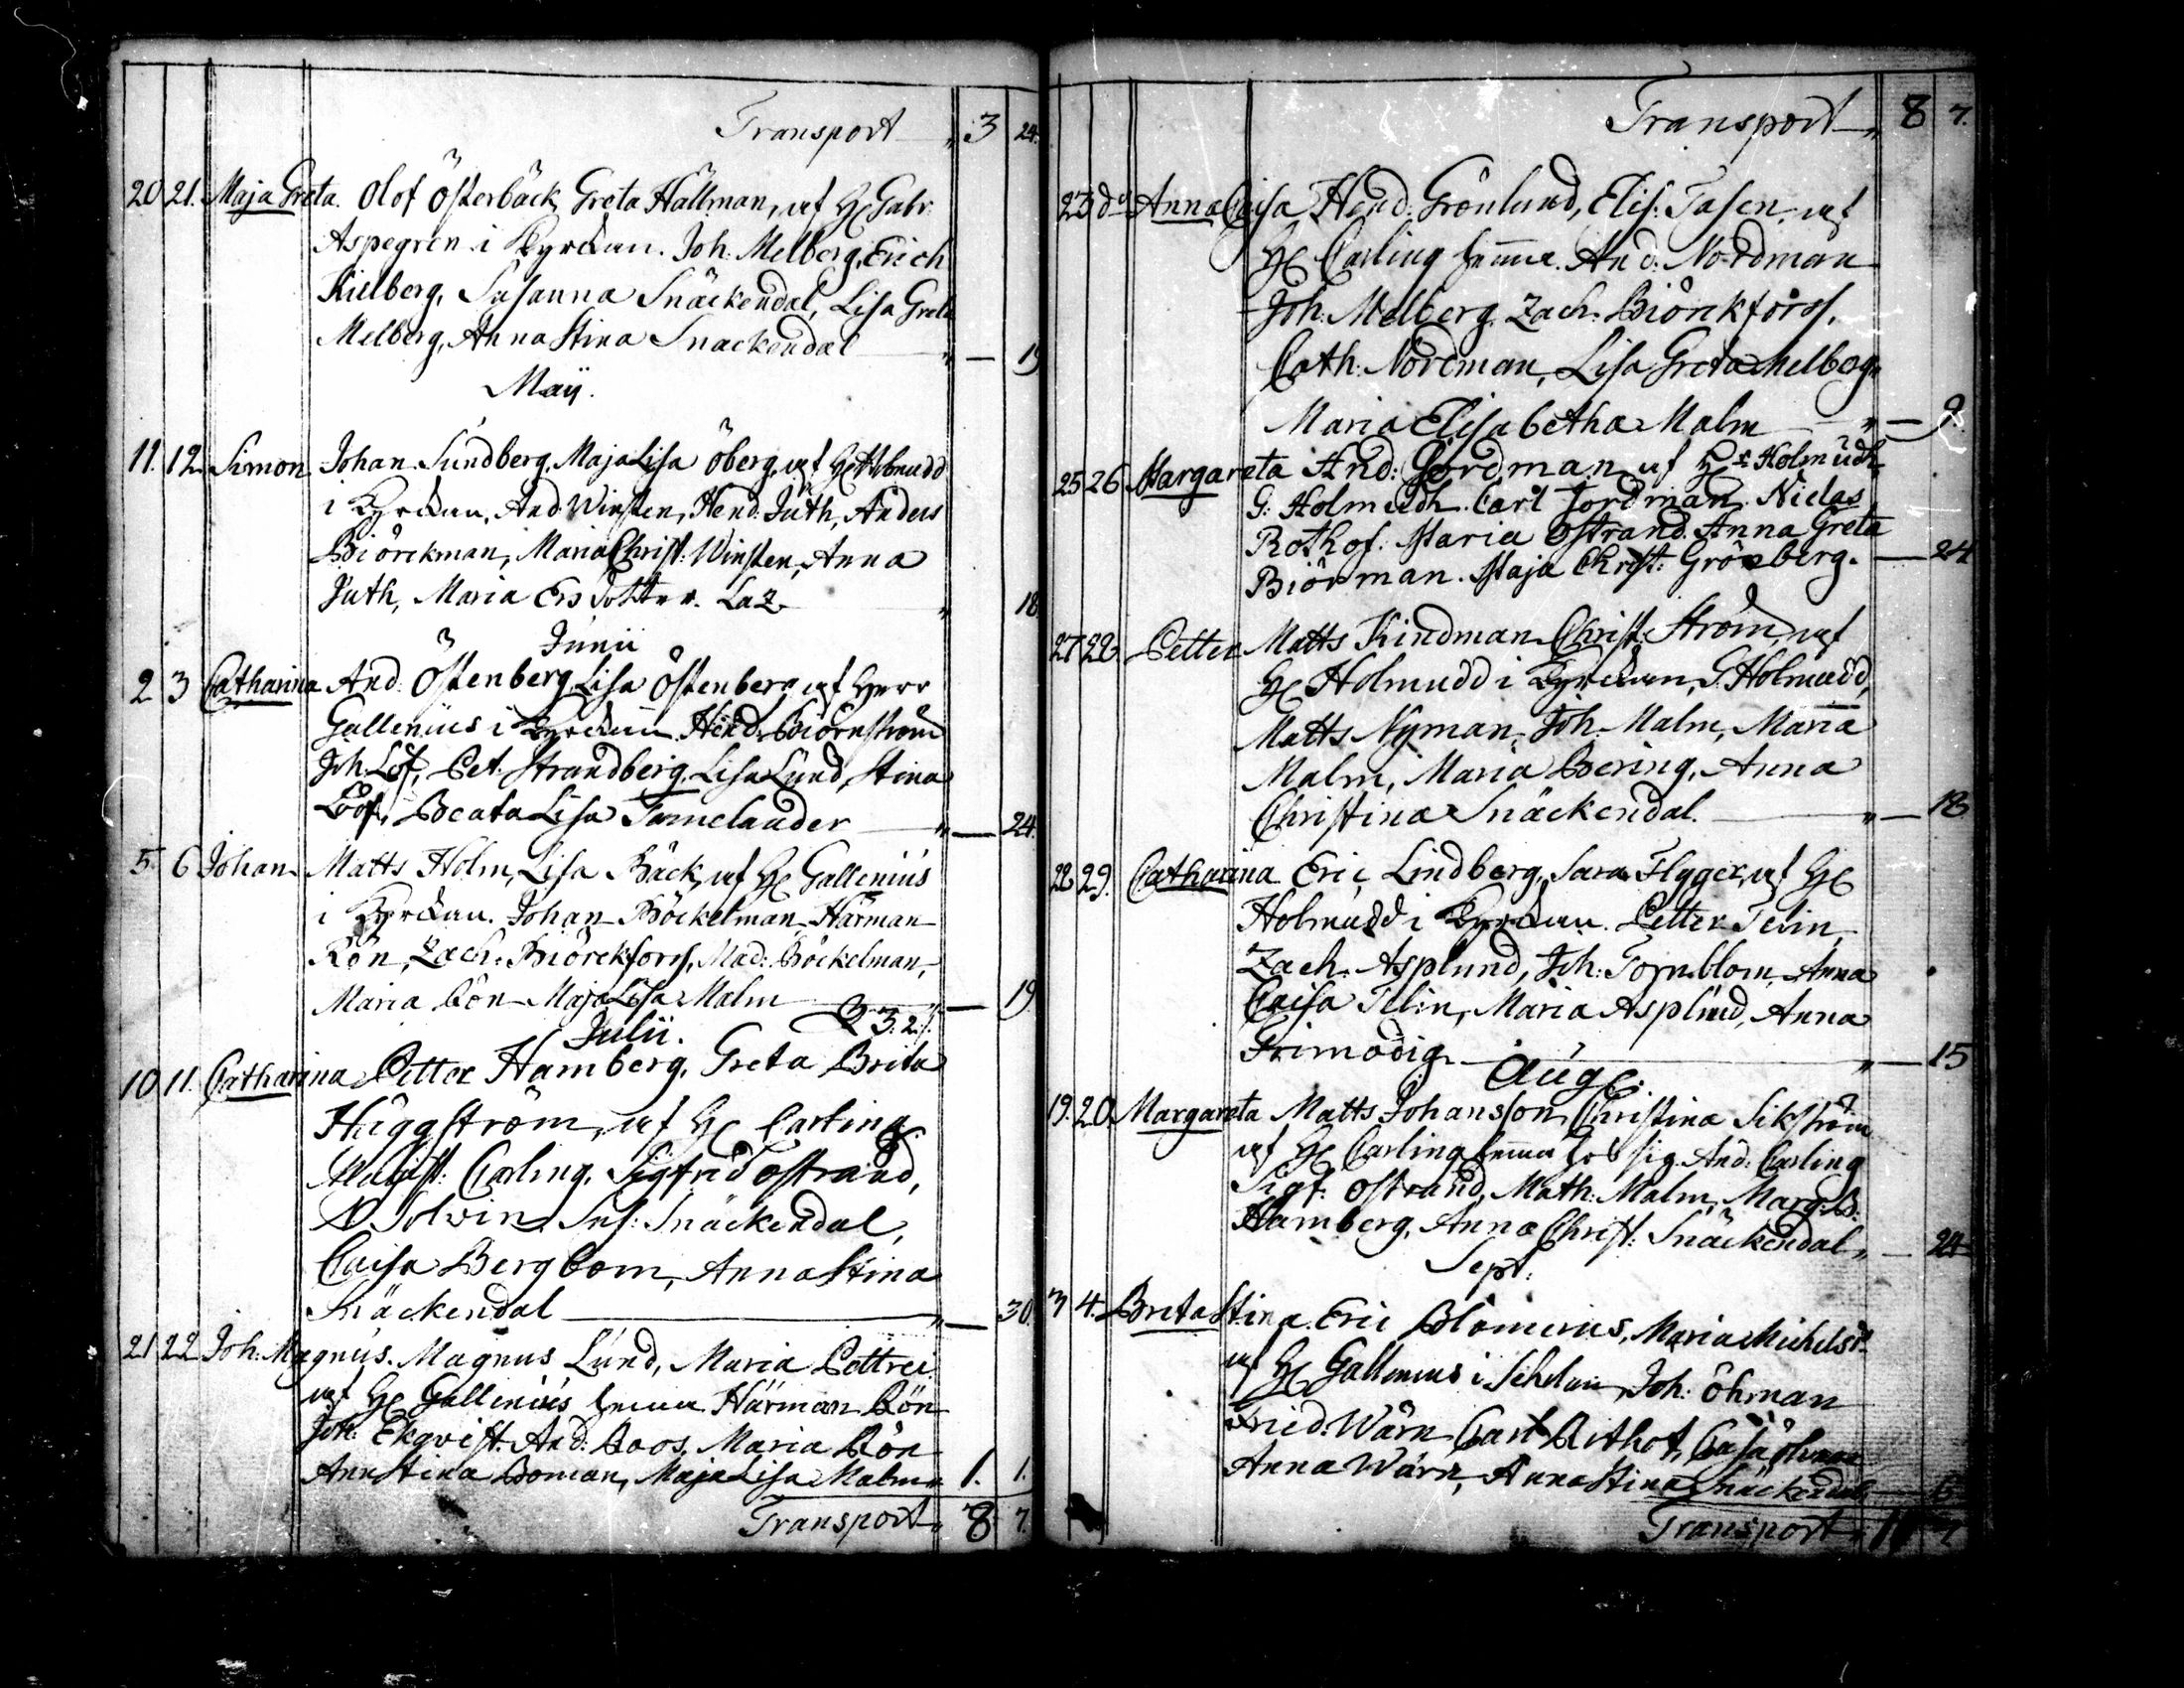 Transport 3 24.
20 21. Maja Greta. Olof Österbäck, Greta Hällman, af H. Gabr:
Aspegren i Kyrckan. Joh: Melberg, Erich
Kielberg, Susanna Snäckendal, Lisa Greta
Melberg, Anna Stina Snackendal — 19
Maij.
11. 12. Simon. Johan Sundberg, Maja Lisa Öberg, af H.
i Kyrckan. And: Winsten, Hend: Juth, Anders
Biörckman, Maria Christ: Winsten, Anna
Juth, Maria Ersdotter. 18
Junii
2 3 Catharina And: Östenberg, Lisa Östenberg, af Herr
Gallenius i Kyrckan. Hend: Biörnström
Joh: Löf, Pet: Strandberg, Lisa Lund, Stina
Löf, Beata Lisa Tamelander — 24.
5. 6 Johan Matts Holm, Lisa Bäck, af H. Gallenius
i Kyrckan. Johan Böckelman, Härman
Rön, Zach: Biörckforss, Mad: Böckelman,
Maria Rön, Maja Lisa Malm — 19.
Julii.
10 11. Catharina Petter Hamberg, Greta Brita
Häggström, af H. Carling.
Magist: Carling, Sigfrid Ostrand,
N Solvin, Sus: Snäckendal,
Caisa Bergbom, Anna Stina
Snäckendal — 30.
21 22 Joh: Magnus. Magnus Lund, Maria Pettrei.
af H. Gallenius hemma Härman Rön
Joh: Ekqvist. And: Roos, Maria Rön
Ann Stina Boman, Maja Lisa Malm 1. 1.
Transport 8 7.
Transport 8 7.
23 do Anna Caisa Hend: Grönlund, Elis: Tasen, af
H. Carling hemma. And: Nordman
Joh: Melberg. Zach: Biörckforss,
Cath: Nordman, Lisa Greta Melberg,
Maria Elisabetha Malm — 9.
25 26 Margareta And: Jordman af H. Holmudh.
G: Holmudh. Carl Jordman. Niclas
Rothof. Maria Ostrand. Anna Greta
Biörman. Maja Christ: Grönberg. — 24
27 28 Petter Matts Kindman, Christ: Ström, af
H. Holmudd i Kyrckan, G: Holmudd,
Matts Nyman, Joh: Malm, Maria
Malm, Maria Bering, Anna
Christina Snäckendal. — 18
28 29. Catharina Eric Lindberg, Sara Flyger, af H.
Holmudd i Kyrckan. Petter Telin,
Zach: Asplund, Joh: Tornblom, Anna
Caisa Telin, Maria Asplund, Anna
Frimodig — 15
Aug.
19. 20. Margareta Matts Johansson, Christina Sikström
af H. Carling hemma hos sig. And: Carling
Sigf: Ostrand, Math: Malm, Marg: B:
Hamberg, Anna Christ: Snäckendal — 24
Sept:
3 4. Brita Stina. Eric Blomerus, Maria Michelsdr
af H. Gallenius i Joh: Öhman
Fried: Wärn, Carl Rithof, Caisa Öhman
Anna Wärn, Anna Stina Snäckendal
Transport 11 7